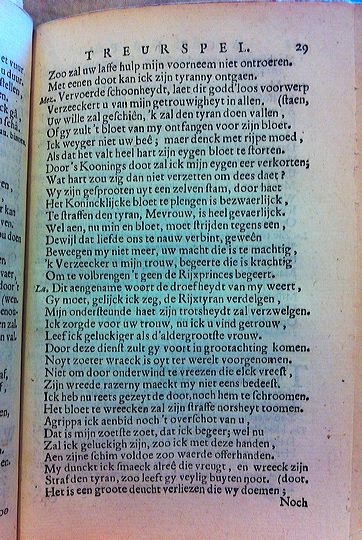 TREURSPEL. 29
Zoo zal uw laffe hulp mijn voorneem niet ontroeren.
Met eenen doot kan ick zijn tyranny ontgaen.
Mez. Vervoerde schoonheydt, laet dit godd'loos voorwerp
Verzeeckert u van mijn getrouwigheyt in allen. (staen,
Uw wille zal geschiên, 'k zal den tyran doen vallen,
Of gy zult 't bloet van my ontfangen voor zijn bloet.
Ick weyger niet uw beê; maer denck met rijpe moed,
Als dat het valt heel hart zijn eygen bloet te storten.
Door 's Koonings doot zal ick mijn eygen eer verkorten;
Wat hart zou zig dan niet verzetten om dees daet?
Wy zijn gesprooten uyt een zelven stam, door haet
Het Koninckljcke bloet te plengen is bezwaerlijck,
Te straffen den tyran, Mevrouw, is heel gevaerlijck.
Wel aen, nu min en bloet, moet strijden tegens een,
Dewijl dat liefde ons te nauw verbint, geweên
Beweegen my niet meer, uw macht die is te machtig,
'k Verzeecker u mijn trouw, begeerte die is krachtig
Om te volbrengen 't geen de Rijxprinces begeert.
La. Dit aengename woort de droefheydt van my weert,
Gy moet, gelijck ick zeg, de Rijxtyran verdelgen,
Mijn ondersteunde haet zijn trotsheydt zal verzwelgen.
Ick zorgde voor uw trouw, nu ick u vind getrouw,
Leef ick geluckiger als d'aldergrootste vrouw.
Door deze dienst zult gy voort in grootachting komen.
Noyt zoeter wraeck is oyt ter werelt voorgenomen.
Niet om door onderwind te vreezen die elck vreest,
Zijn wreede razerny maeckt my niet eens bedeest.
Ick heb nu reets gezeyt de door, noch hem te schroomen.
Het bloet te wreecken zal zijn straffe norsheyt toomen.
Agrippa ick aenbid noch 't overschot van u,
Dat is mijn zoetste zoet, dat ick begeer; wel nu
Zal ick geluckigh zijn, zoo ick met deze handen,
Aen zijne schim voldoe zoo waerde offerhanden.
My dunckt ick smaeck alreê die vreugt, en wreeck zijn
Straf den tyran, zoo leeft gy veylig buyten noot. (door.
Het is een groote deucht verliezen die wy doemen;
Noch